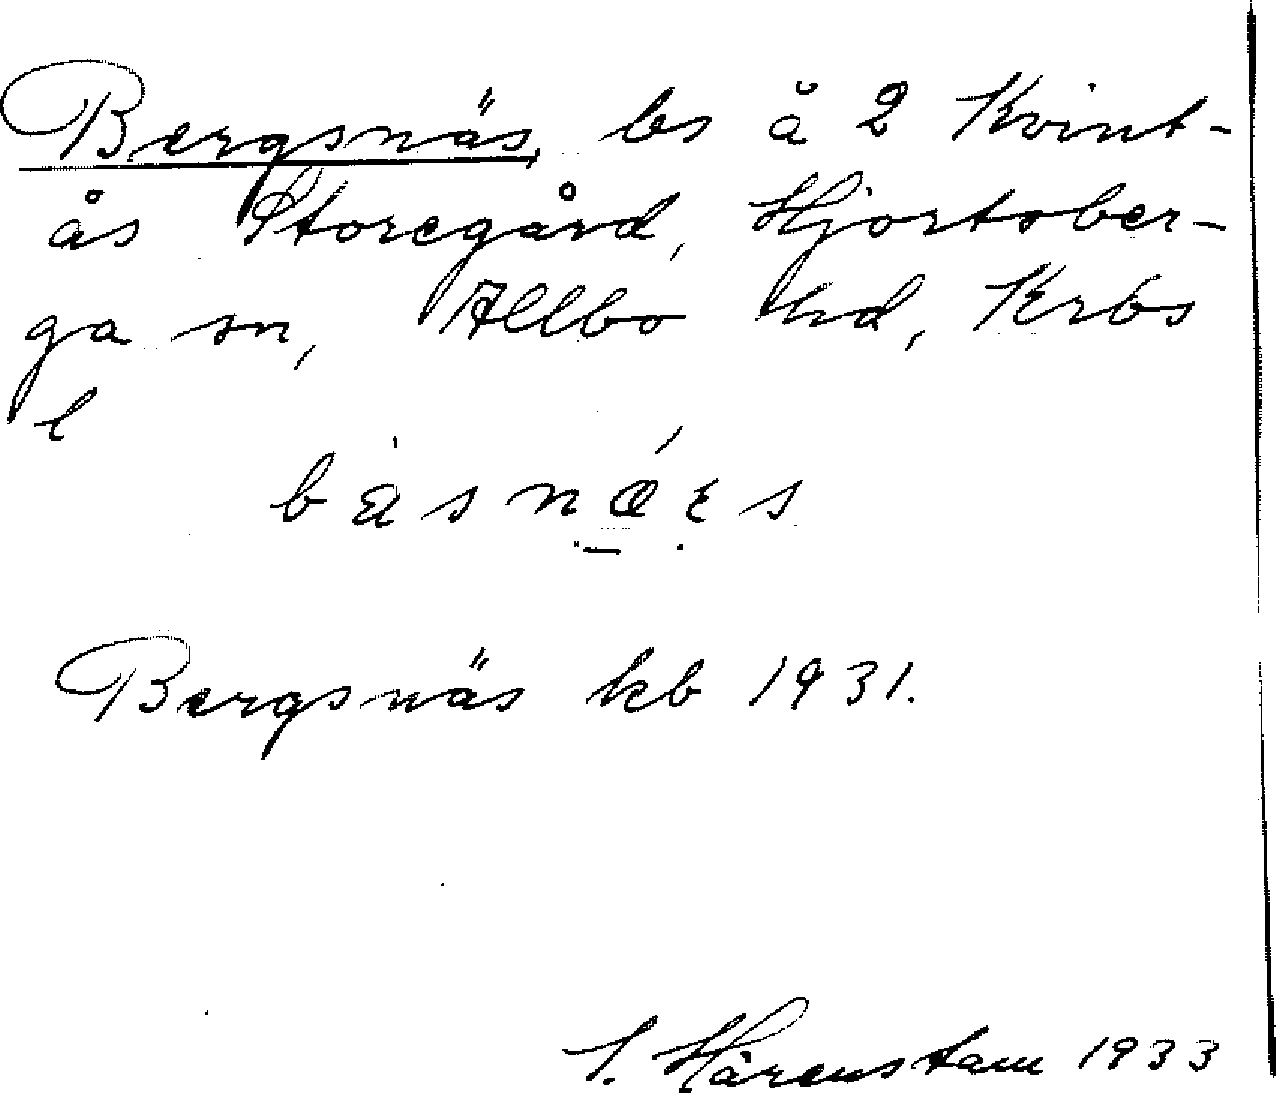 Bergsnäs, bs å 2 Kvint-
ås Storegård, Hjortsber-
ga sn, Allbo hd, Krbs
l
Bergsnäs kb 1931.
S. Hårenstam 1933